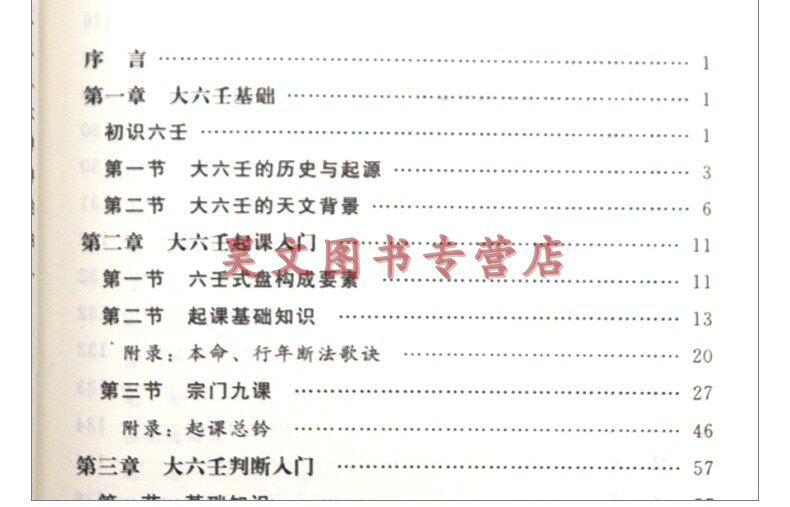 序 言 1
第一章 大六壬基础 1
初识六壬 1
第一节 大六壬的历史与起源 3
第二节 大六壬的天文背景 6
第二章 大六壬起课入门 11
昊文图书专营店
第一节 六壬式盘构成要素 11
第二节 起课基础知识 13
附录：本命、行年断法歌诀 20
第三节 宗门九课 27
附录：起课总钤 46
第三章 大六壬判断入门 57
第一节 基础知识